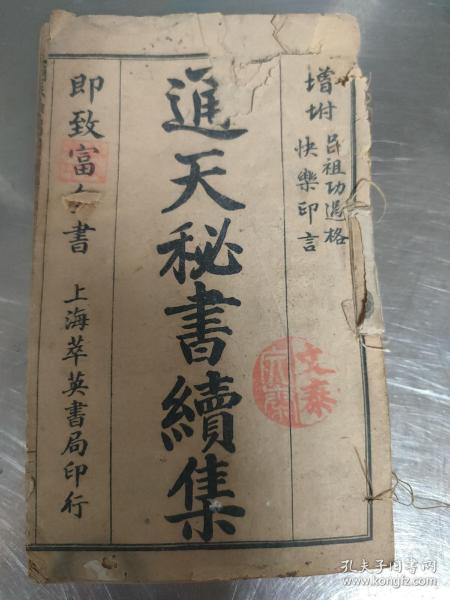 增坿
呂祖功過格
快樂印言
通天秘書續集
即致富書
上海萃英書局印行
文泰
孔夫子旧书网
www.kongfz.com